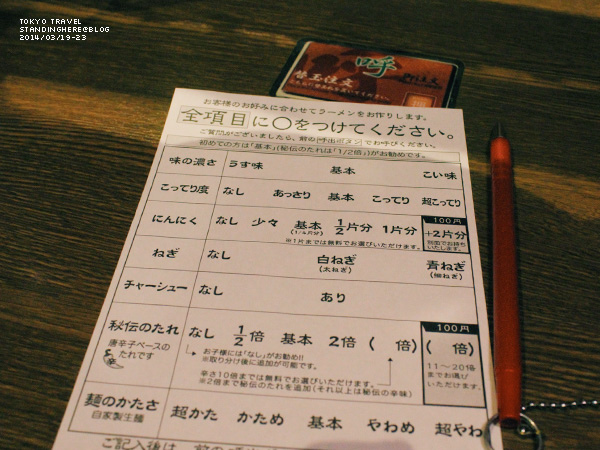 TOKYO TRAVEL
STANDINGHERE@BLOG
2014/03/19-23
呼
替玉注文
お客様のお好みに合わせてラーメンをお作りします。
全項目に○をつけてください。
ご質問がございましたら、前の呼出ボタンでお呼びください。
初めての方は「基本」(秘伝のたれは「1/2倍」)がお勧めです。
味の濃さ うす味 基本 こい味
こってり度 なし あっさり 基本 こってり 超こってり
にんにく なし 少々 基本 1/2片分 1片分 +2片分
100円
(1/4片分)
別皿でお持ちいたします。
※1片までは無料でお選びいただけます。
ねぎ なし 白ねぎ 青ねぎ
(太ねぎ) (細ねぎ)
チャーシュー なし あり
100円
秘伝のたれ なし 1/2倍 基本 2倍 ( 倍) ( 倍)
唐辛子ベースのたれです
お子様には「なし」がお勧め!!
※取り分け後に追加が可能です。
11〜20倍までお選びいただけます。
辛さ10倍までは無料でお選びいただけます。
※2倍まで秘伝のたれを追加(それ以上は秘伝の辛味)
麺のかたさ 超かた かため 基本 やわめ 超やわ
自家製生麺
ご記入後は、前の